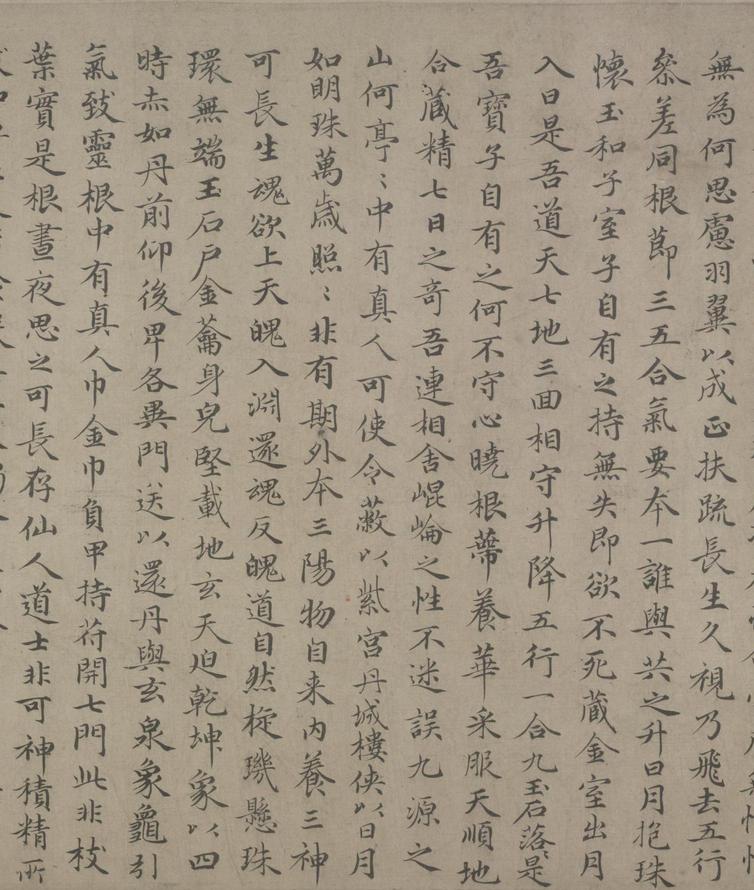 無為何思慮羽翼以成正扶疏長生久視乃飛去五行
參差同根蔀三五合氣要本一誰與共之升日月抱珠
懷玉和子室子自有之持無失即欲不死藏金室出月
入日是吾道天七地三回相守升降五行一合九玉石落落是
吾寶子自有之何不守心曉根蒂養華采服天順地
合藏精七日之奇吾連相舍崐崘之性不迷誤九源之
山何亭〻中有真人可使令蔽以紫宮丹城樓俠以日月
如明珠萬歲照〻非有期外本三陽物自来內養三神
可長生魂欲上天魄入淵還魂反魄道自然㫌璣懸珠
環無端玉石戶金籥身皃堅載地玄天迫乾坤象以四
時赤如丹前仰後卑各異門送以還丹與玄泉象龜引
氣致靈根中有真人巾金巾負甲持苻開七門此非枝
葉實是根晝夜思之可長存仙人道士非可神積精所